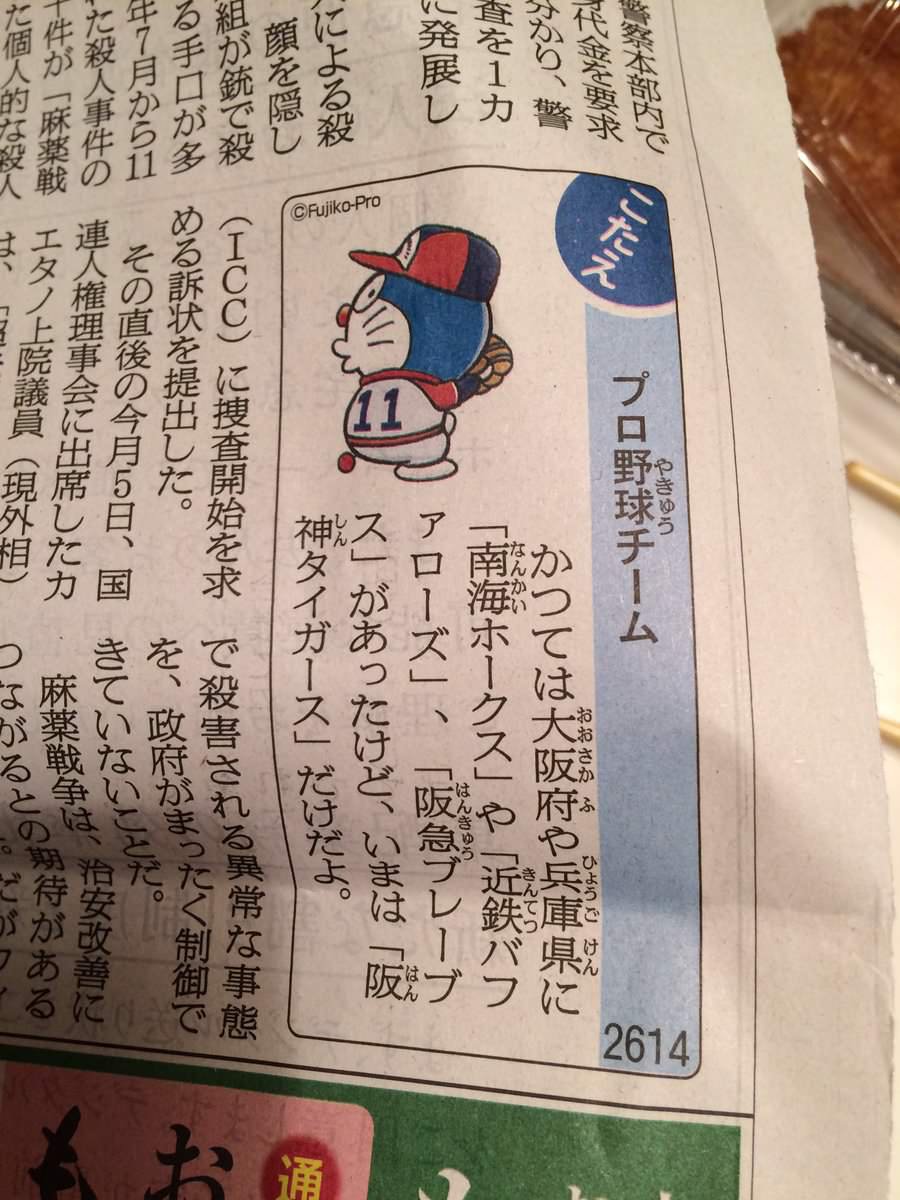 警察本部内で
身代金を要求
分かり、警
査を1カ
に発展し
による殺
顔を隠し
組が銃で殺
る手口が多
年7月から11
た殺人事件の
十件が「麻薬戦
た個人的な殺人
こたえ
プロ野球チーム
やきゅう
2614
©Fujiko-Pro
11
かつては大阪府や兵庫県に
おおさかふ ひょうごけん
「南海ホークス」や「近鉄バフ
なんかい きんてつ
ァローズ」、「阪急ブレーブ
はんきゅう
ス」があったけど、いまは「阪
はん
神タイガース」だけだよ。
しん
（ICC）に捜査開始を求
める訴状を提出した。
その直後の今月5日、国
連人権理事会に出席したカ
エタノ上院議員（現外相）
で殺害される異常な事態
を、政府がまったく制御で
きていないことだ。
麻薬戦争は、治安改善に
つながるとの期待がある
通
お
も